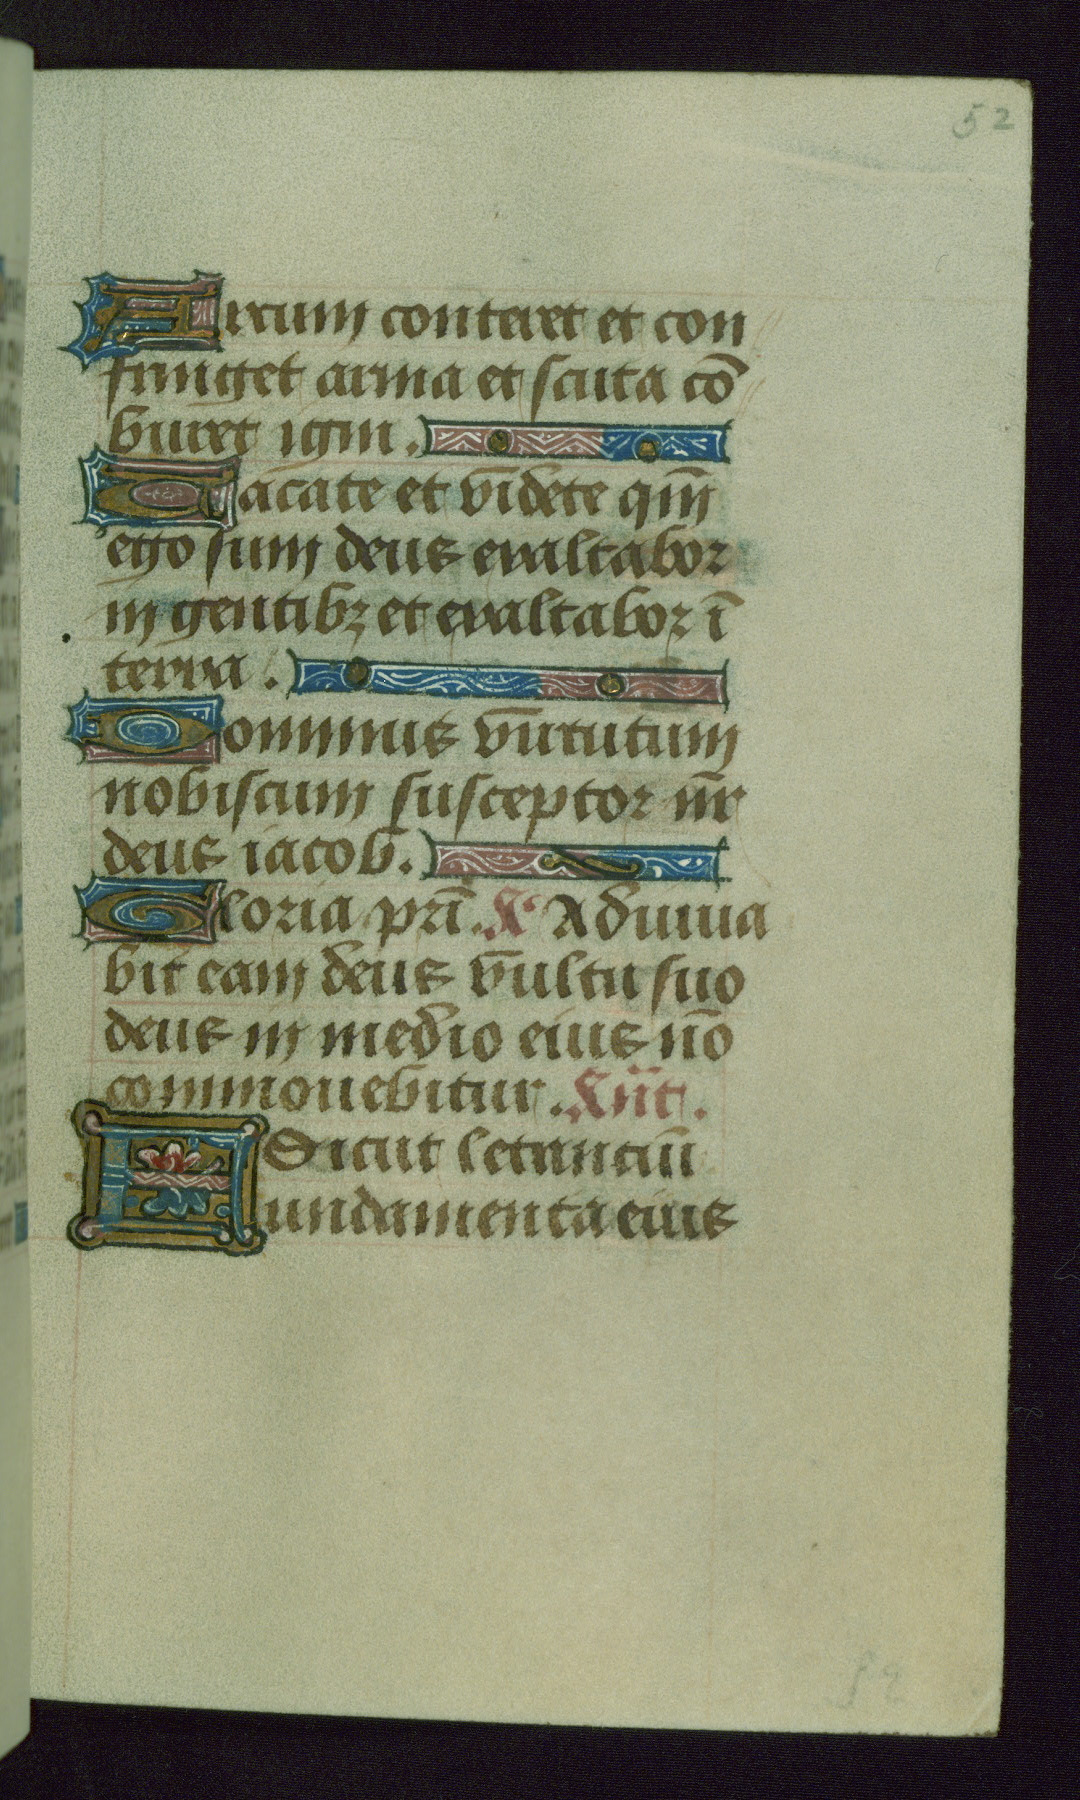 52
Arcum conteret et con
fringet arma et scuta cō
buret igni.
Vacate et videte qm̄
ego sum deus exaltabor
in gentibꝫ et exaltabor ī
terra.
Dominus virtutum
nobiscum susceptor nr̄
deus iacob.
Gloria pri̅. A̅ Adiuua
bit eam deus vultu suo
deus in medio eius nō
commouebitur. Añt.
Sicut letantiū
Fundamenta eius
52